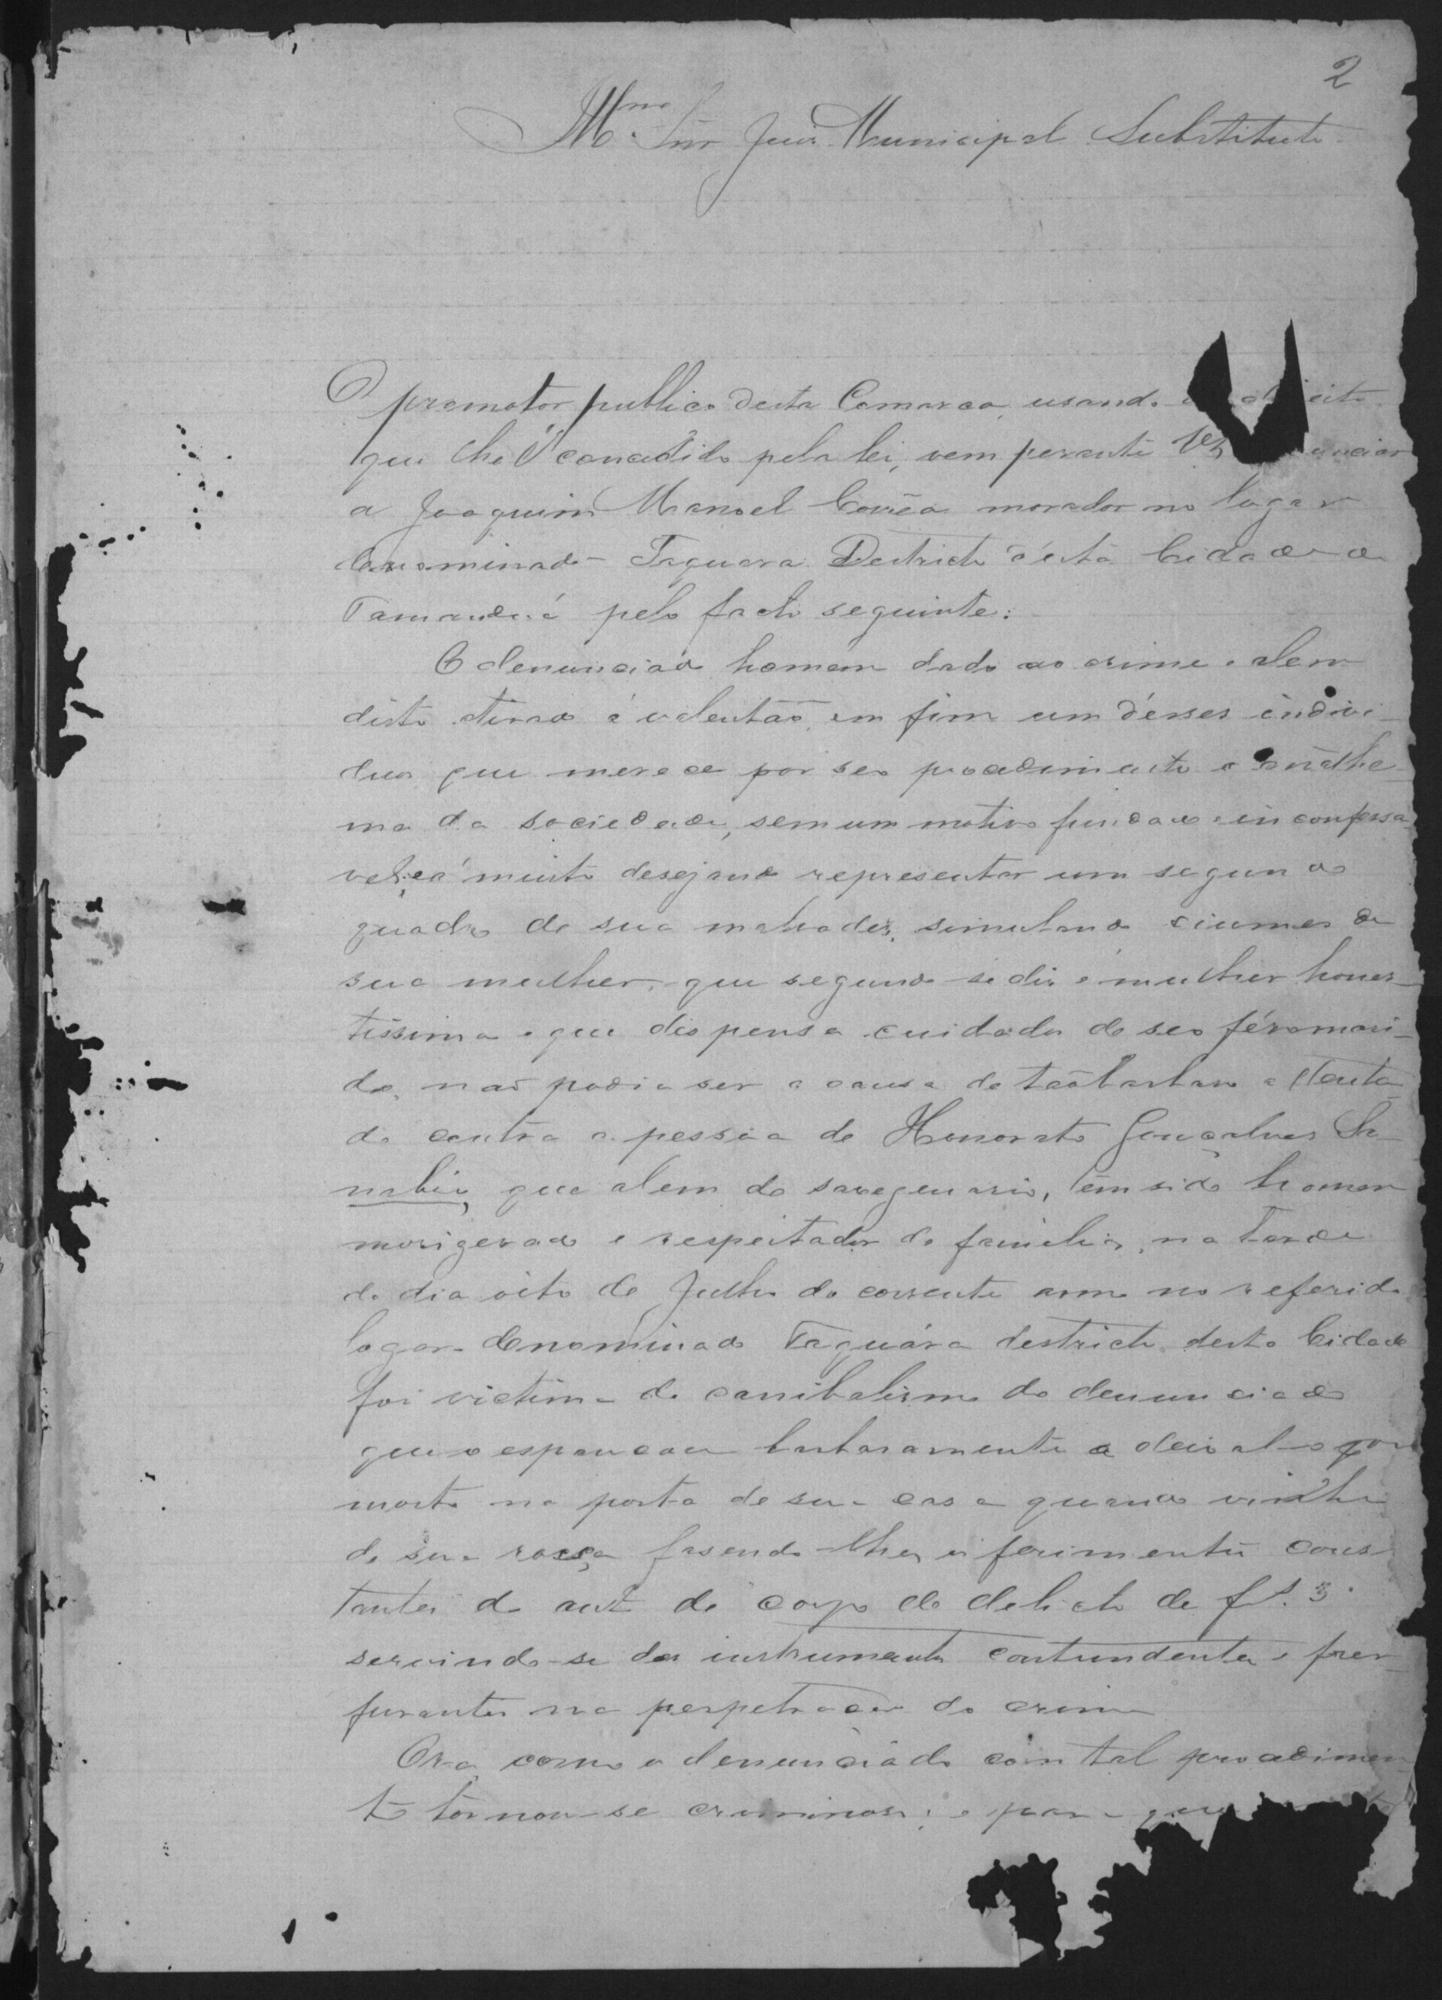 2
Mmo Snr Juis Municipal Substituto
O promotor publico desta Comarca, usando
que lhe é concedido pela lei, vem perante VS
a Joaquim Manoel Corrêa morador no lugar
denominado Taquara Destricto d'esta Cidade de
Tamanduá pelo facto seguinte:
O denunciado homem dado ao crime e alem
disto tirado á valentão, em fim um désses indivi-
duos que merece por seo procedimento o anáthe-
ma da sociedade, sem um motivo fundado e inconfessa-
vel, e á muito desejando representar um segundo
quadro de sua malvadez, simulando ciumes de
sua mulher, que segundo se diz é mulher hones-
tissima e que dispensa cuidados de seo féro mari-
do, não podia ser a causa de tão barbaro attenta-
do contra a pessôa de Honorato Gonçalves Sa-
nabio, que alem de sexagenario, tem sido homem
morigerado e respeitador de familia, na tarde
do dia oito de Julho do corrente anno no referido
logar denominado Taquára destricto desta Cidade
foi victima do canibalismo do denunciado
que o espancou barbaramente a deixal-o por
morto na porta de sua casa quando vinha
de sua roça, fasendo-lhe os ferimentos cons-
tantes do auto de corpo de delicto de fs. 3
servindo-se de instrumentos contundentes e per-
furantes na perpetração do crime
Ora, como o denunciádo com tal procedimen-
to tornou-se criminoso; e para que